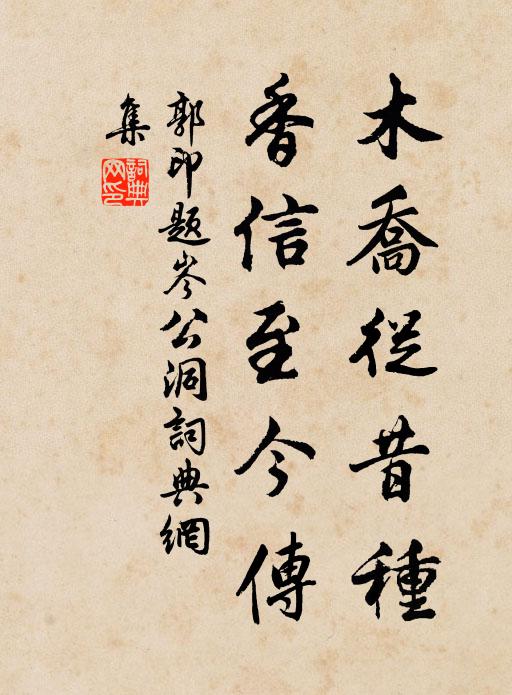 木喬從昔種
香信至今傳
郭印題岑公洞詞典網
集
詞典網印